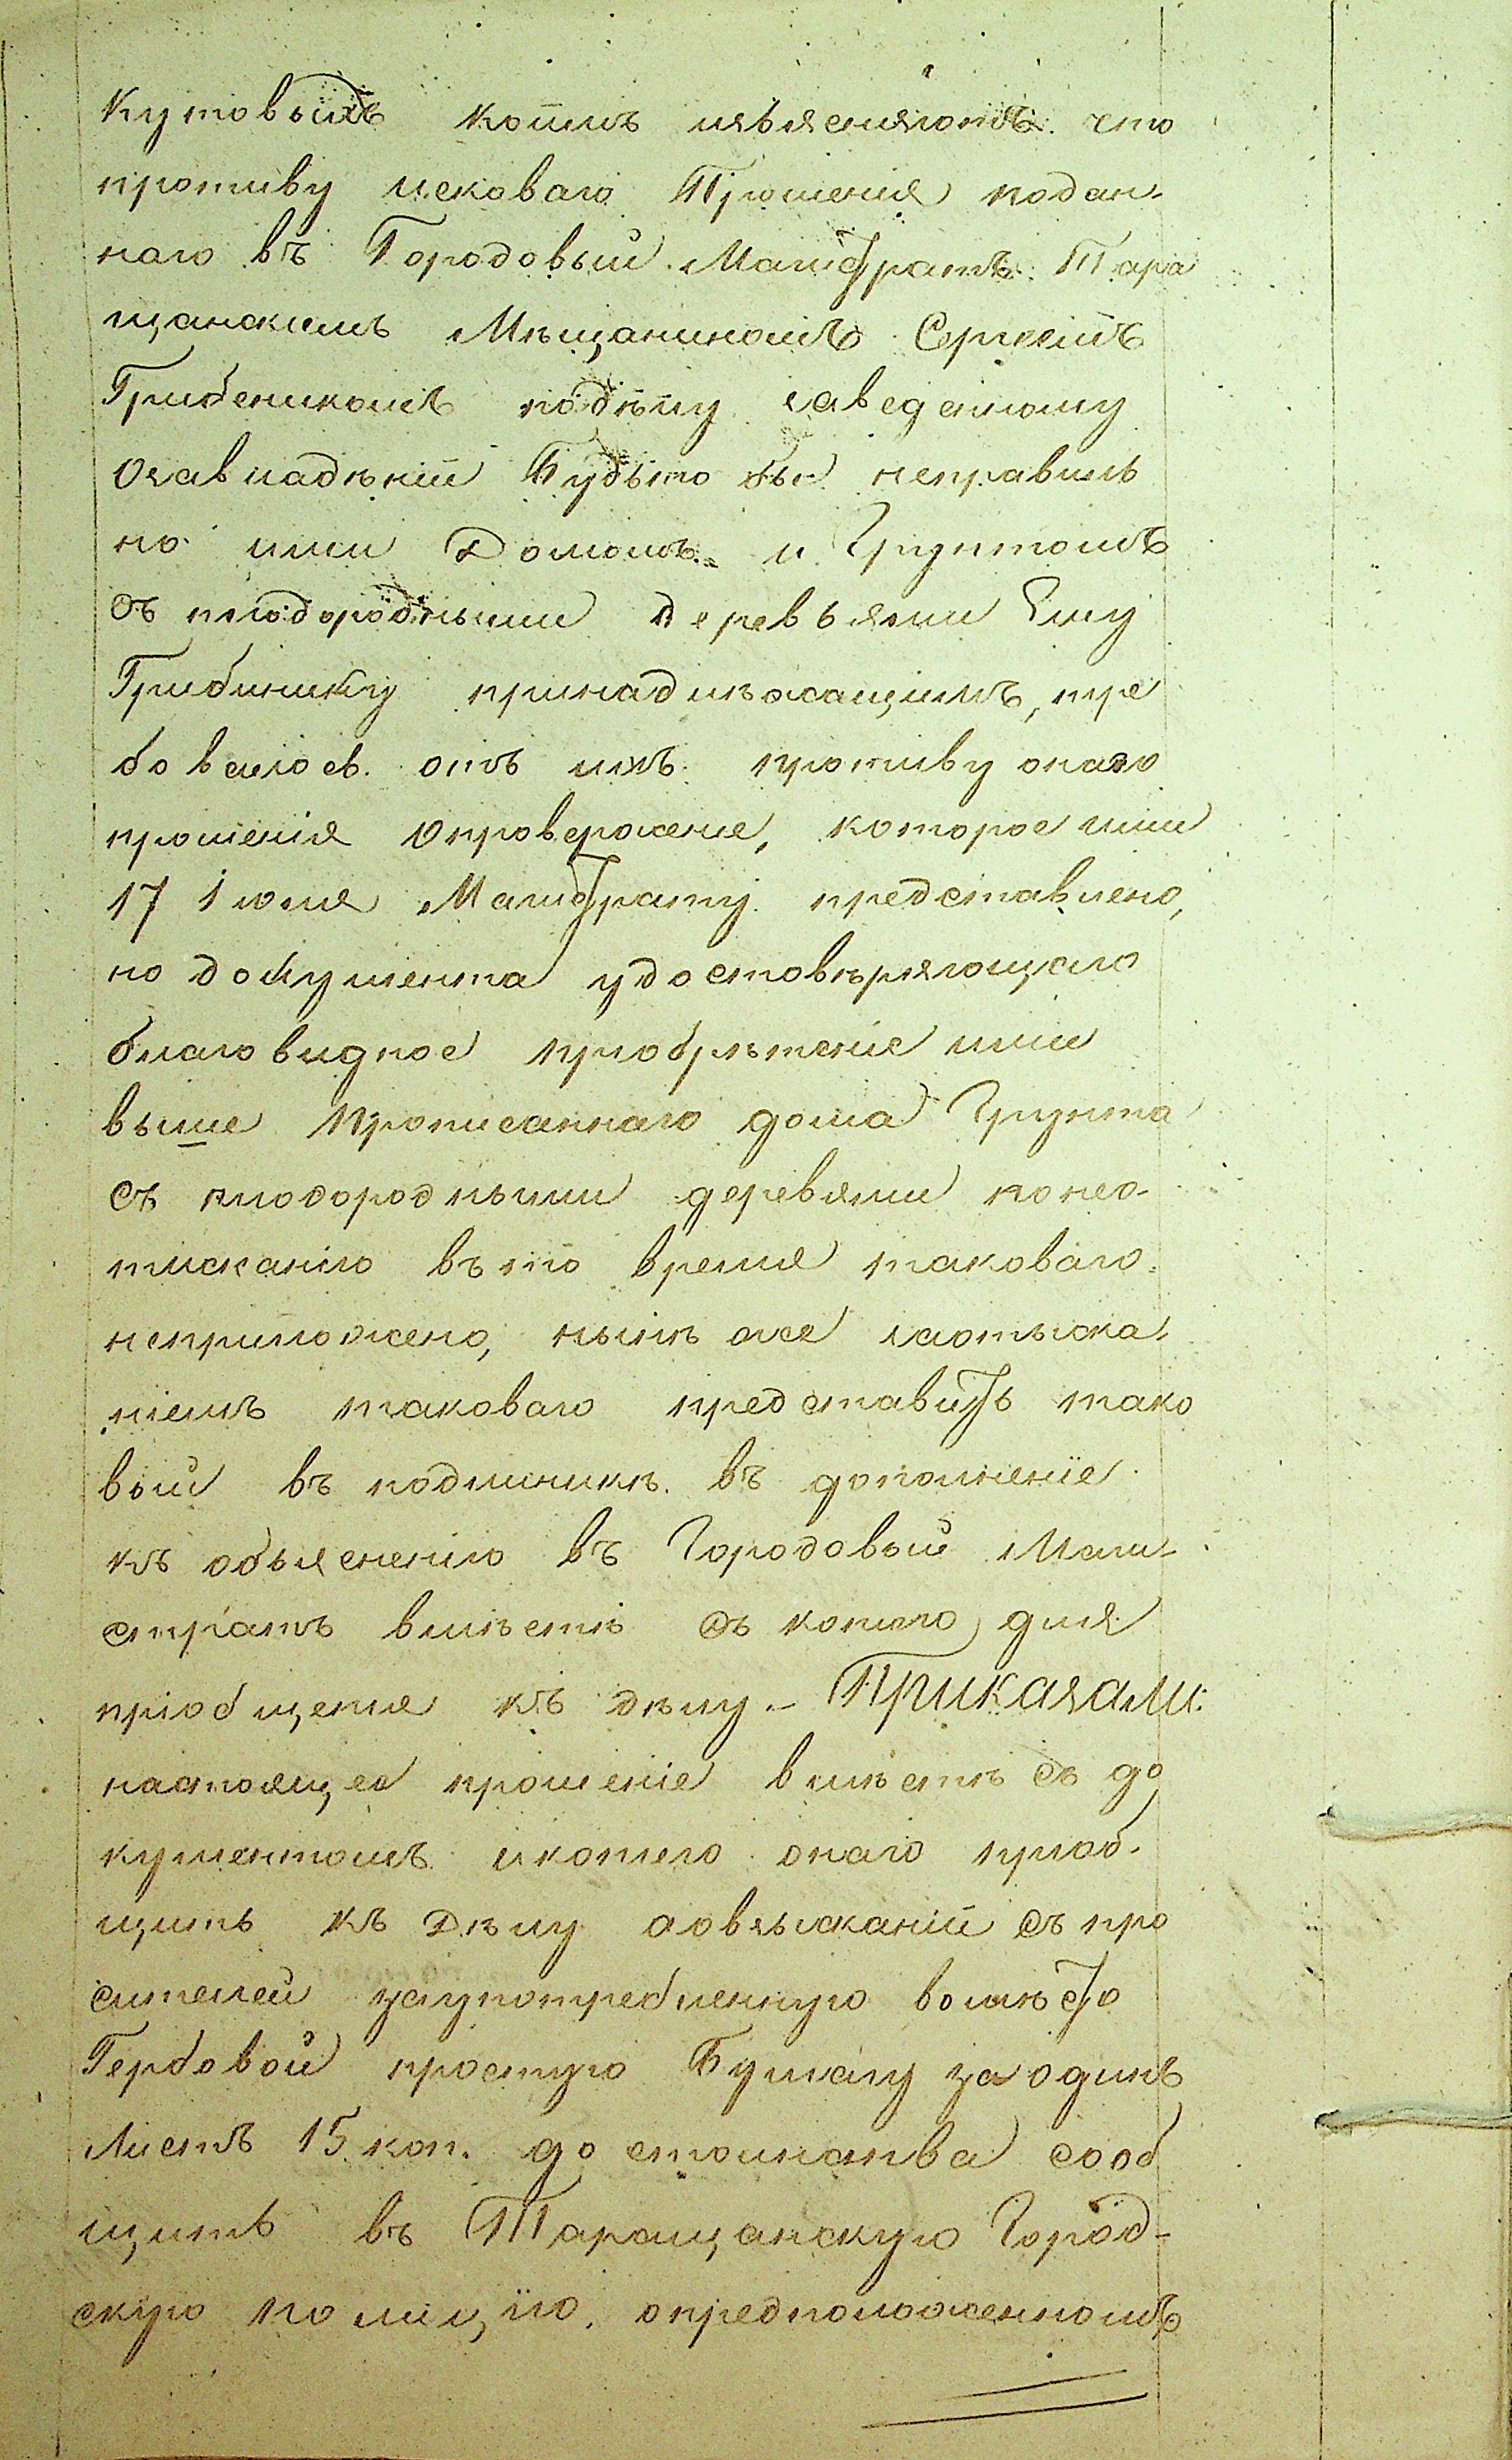 Кутовыхъ коимъ изъясняютъ что
противу исковаго Прошенія подан-
наго въ Городовый Магистратъ Тара
щанскимъ Мѣщаниномъ Сергѣемъ
Грибеникомъ подѣлу заведенному
Озавладѣніи Будьто бы неправиль
но ими Домомъ и Грунтомъ
съ плодородными деревьями Ему
Грибинику принадлѣжащимъ, тре
бовалось отъ ихъ противу онаго
прошенія опровержене, которое ими
17 Іюля Магистрату представлено,
но документа удостовѣряющаго
благовидное пріобрѣтеніе ими
выше прописаннаго дома Грунта
съ плодородными деревями понео-
тисканію въто время таковаго
неприложено, нынѣ же заотыска-
ніемъ таковаго представитъ тако
вый въ подлиникѣ въ дополненіе
къ объясненію въ Городовый Маги-
стратъ вмѣстѣ съ копією для
пріобщенія къ дѣлу – Приказали:
настоящее прошеніе вмѣстѣ съ до
кументомъ икопіею онаго пріоб-
щить къ Дѣлу аовзысканіи съ про
сителей заупотребленную вомѣсто
Гербовой простую Бумагу за одинъ
Листъ 15 коп. до стоинства сооб
щить въ Таращанскую Город-
скую полицію, опредположенномъ